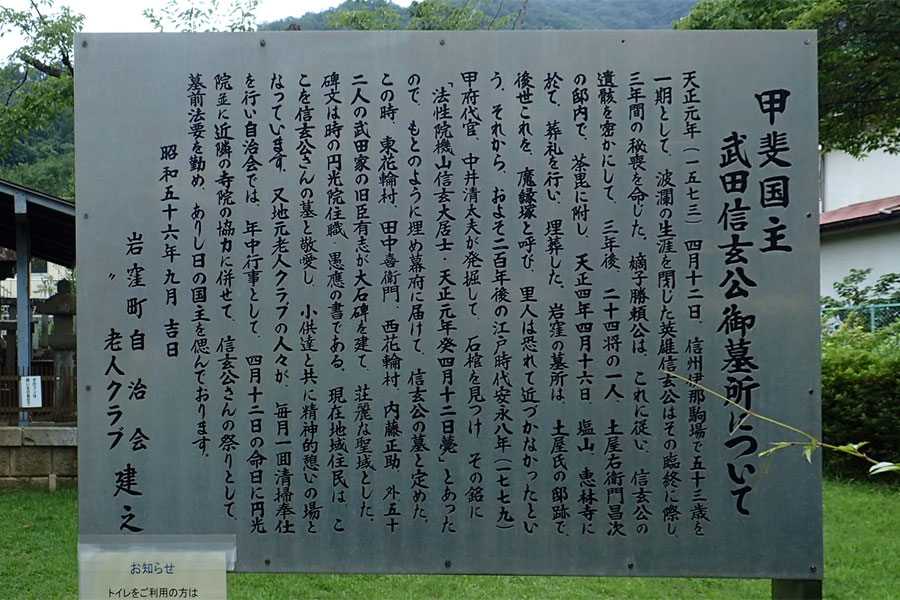 甲斐国主
武田信玄公御墓所について
天正元年(一五七三)四月十二日、信州伊那駒場で五十三歳を
一期として、波瀾の生涯を閉じた英雄信玄公はその臨終に際し、
三年間の秘喪を命じた。嫡子勝頼公は、これに従い、信玄公の
遺骸を密かにして、三年後、二十四将の一人、土屋右衛門昌次
の邸内で、荼毘に附し、天正四年四月十六日、塩山、恵林寺に
於て、葬礼を行い、埋葬した。岩窪の墓所は、土屋氏の邸跡で、
後世これを、魔縁塚と呼び、里人は恐れて近づかなかったとい
う、それから、およそ二百年後の江戸時代安永八年(一七七九)
甲府代官、中井清太夫が発掘して、石棺を見つけ、その銘に
「法性院機山信玄大居士・天正元年癸四月十二日薨」とあった
ので、もとのように埋め幕府に届けて、信玄公の墓と定めた。
この時、東花輪村、田中喜衛門、西花輪村、内藤正助、外五十
二人の武田家の旧臣有志が大石碑を建て、荘麗な聖域とした。
碑文は時の円光院住職・愚應の書である。現在地域住民は、こ
こを信玄公さんの墓と敬愛し、小供達と共に精神的憩いの場と
なっています。又地元老人クラブの人々が、毎月一回清掃奉仕
を行い自治会では、年中行事として、四月十二日の命日に円光
院並に近隣の寺院の協力に併せて、信玄公さんの祭りとして、
墓前法要を勤め、ありし日の国主を偲んでおります。
昭和五十六年九月 吉日
岩窪町自治会
〃 老人クラブ 建之
お知らせ
トイレをご利用の方は